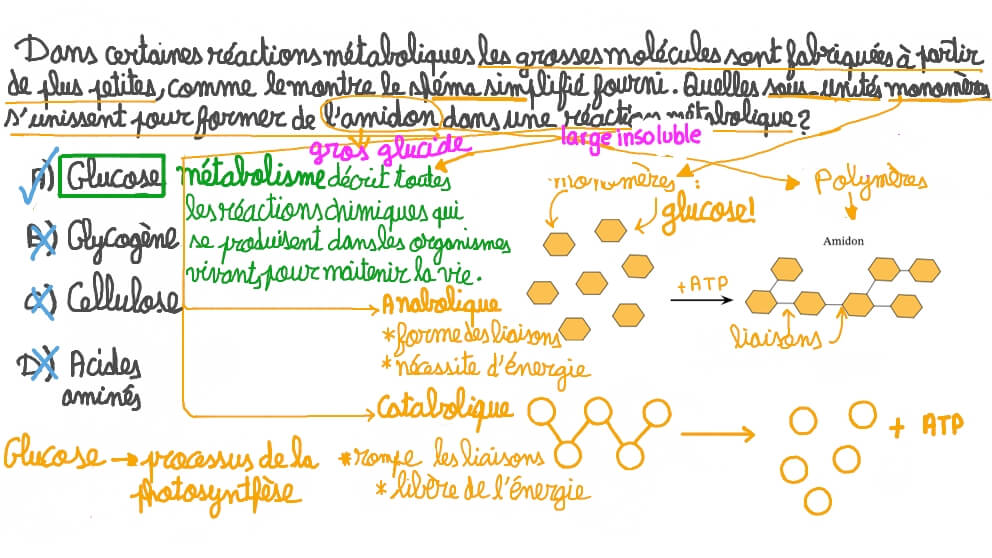 Dans certaines réactions métaboliques les grosses molécules sont fabriquées à partir
de plus petites, comme le montre le shéma simplifié fourni. Quelles sous-unités monomères
s'unissent pour former de l'amidon dans une réaction métabolique?
gros glucide
large insoluble
A) Glucose
B) Glycogène
C) Cellulose
D) Acides
aminés
métabolisme décrit toutes
les réactions chimiques qui
se produisent dans les organismes
vivant, pour maitenir la vie.
Anabolique
*forme des liaisons
*nécessite d'énergie
Catabolique
*rompe les liaisons
*libère de l'énergie
Glucose → processus de la
photosynthèse
monomères :
glucose!
Polymères
Amidon
+ATP
liaisons
+ ATP